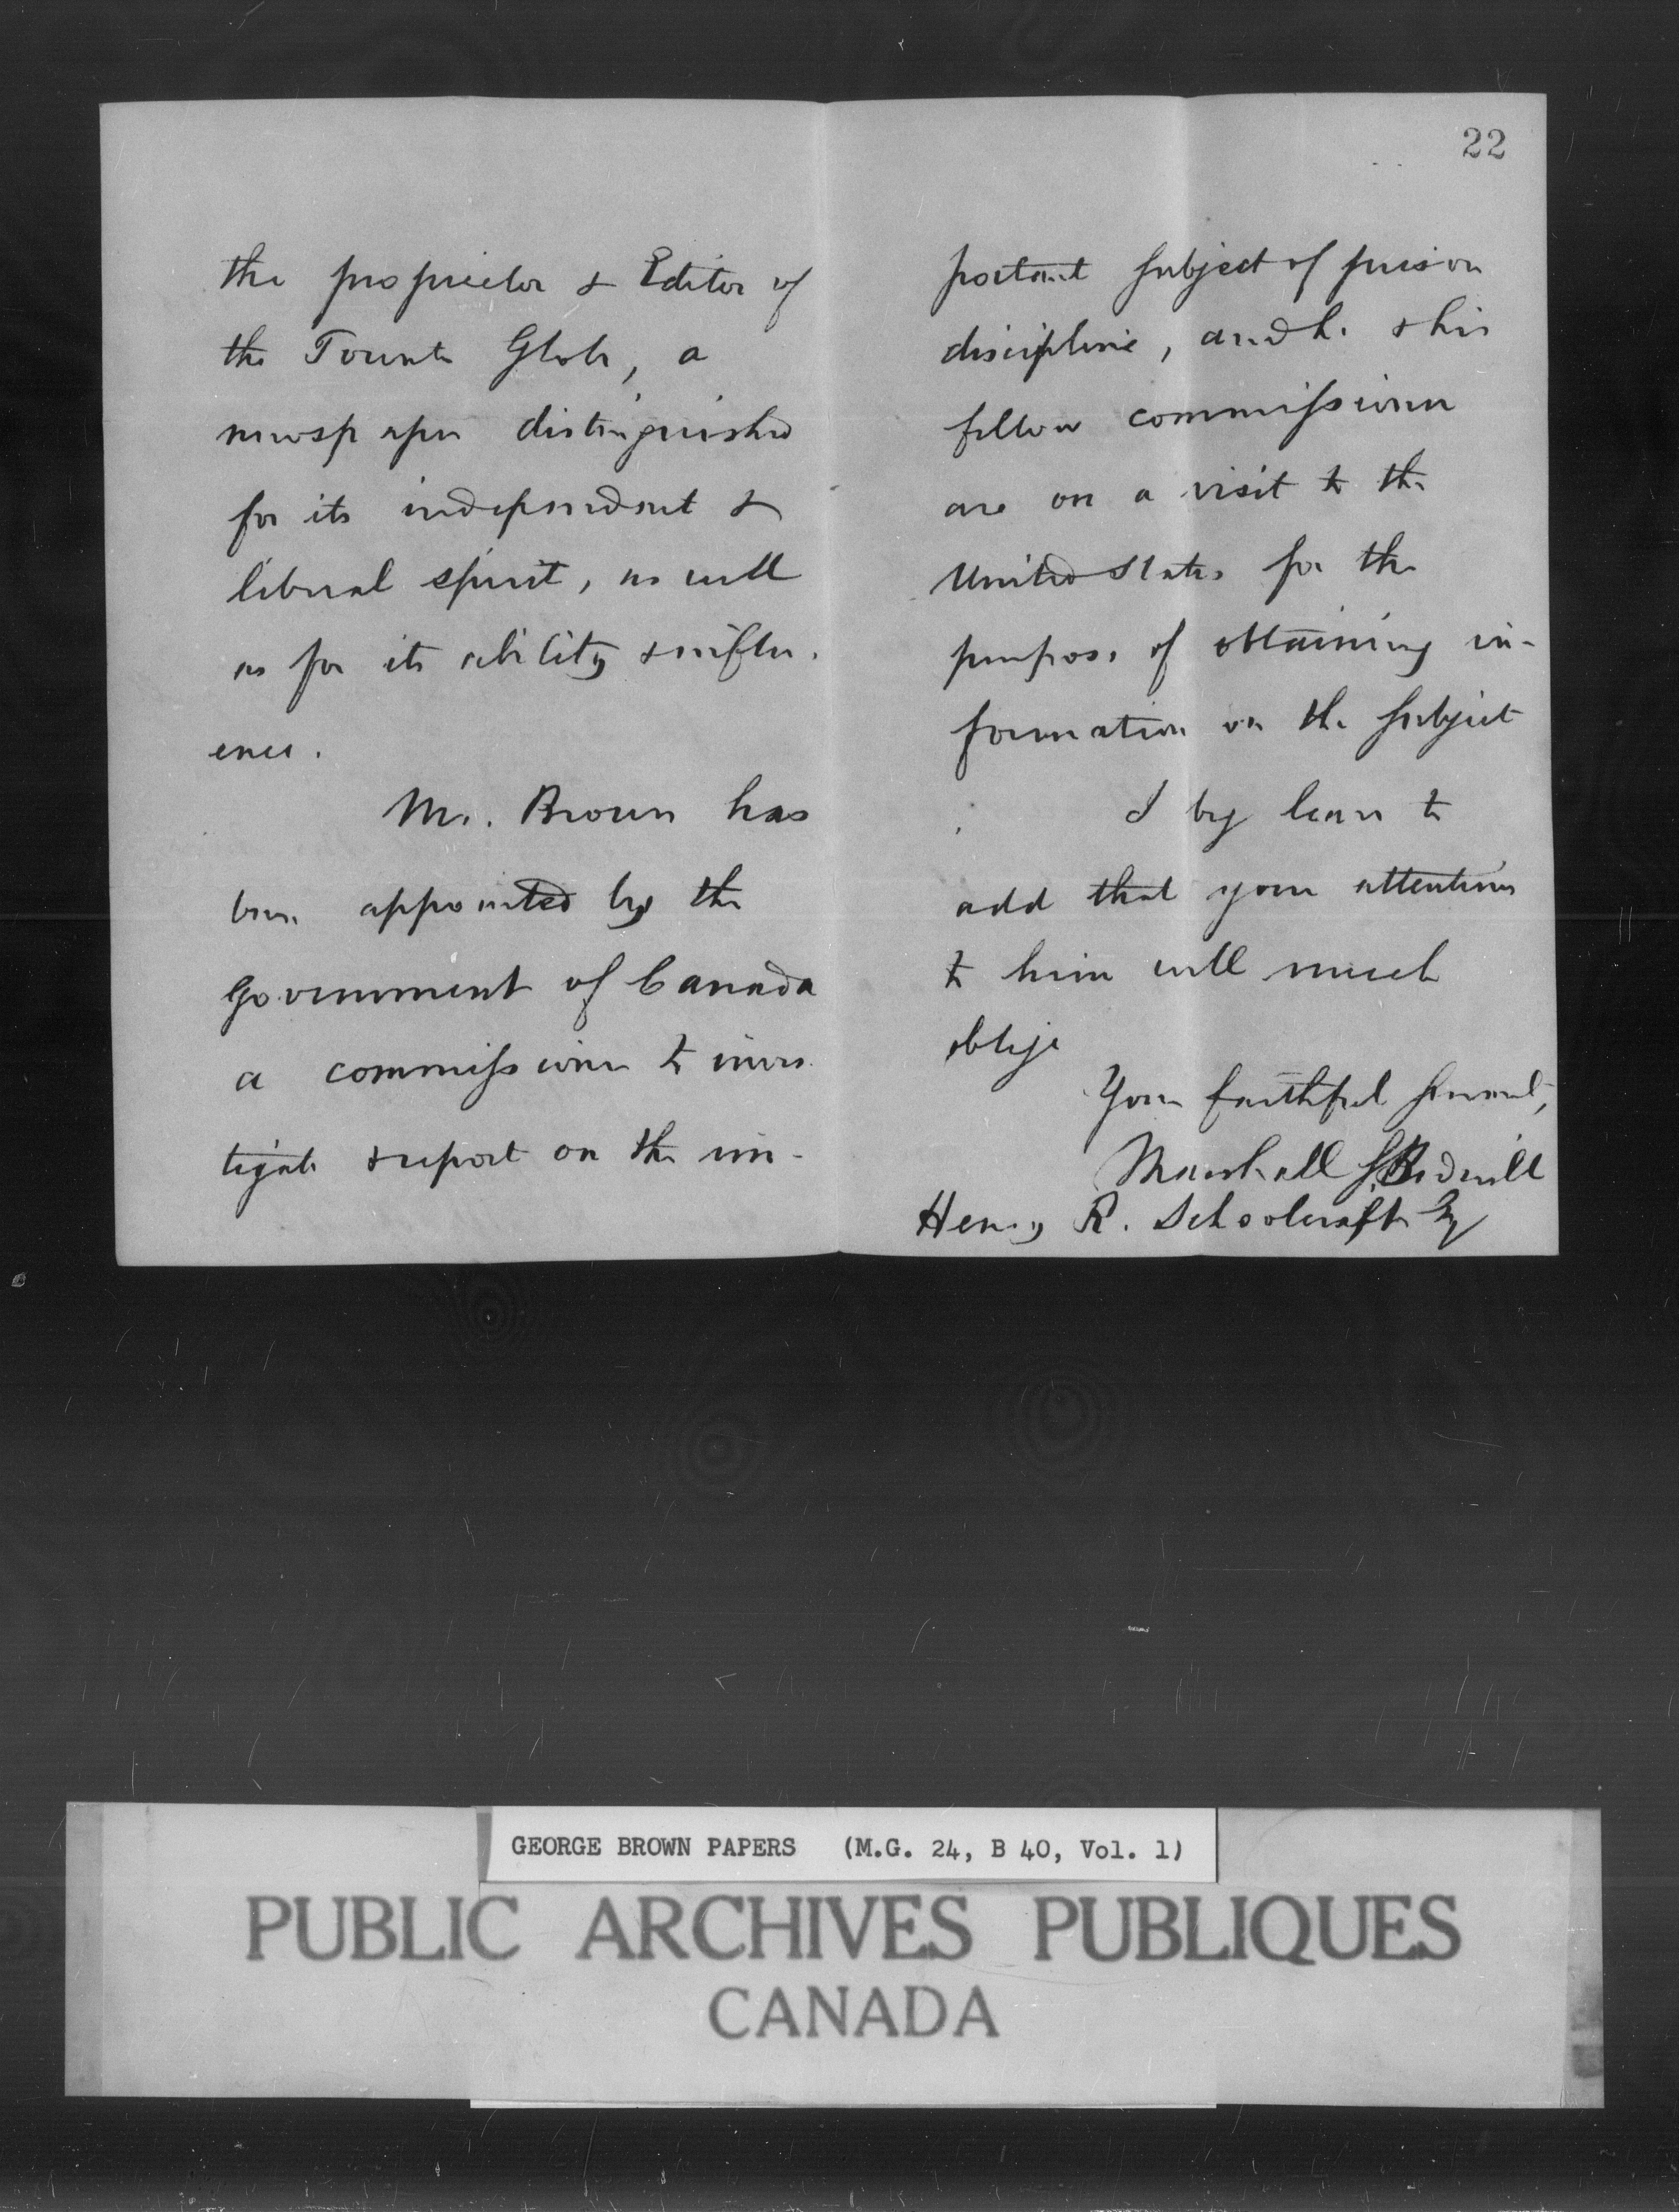 22
the proprietor & Editor of
the Toronto Globe, a
newspaper distinguished
for its independent &
liberal spirit, as well
as for its ability & influ-
ence.
Mr. Brown has
been appointed by the
Government of Canada
a commissioner to inves-
tigate & report on the im-
portant subject of prison
discipline, and he & his
fellow commissioner
are on a visit to the
United States for the
purpose of obtaining in-
formation on the subject
I beg leave to
add that your attentions
to him will much
oblige
Your faithful servant,
Marshall S. Bidwill
Henry R. Schoolcraft Esq
GEORGE BROWN PAPERS (M.G. 24, B 40, Vol. 1)
PUBLIC ARCHIVES PUBLIQUES
CANADA